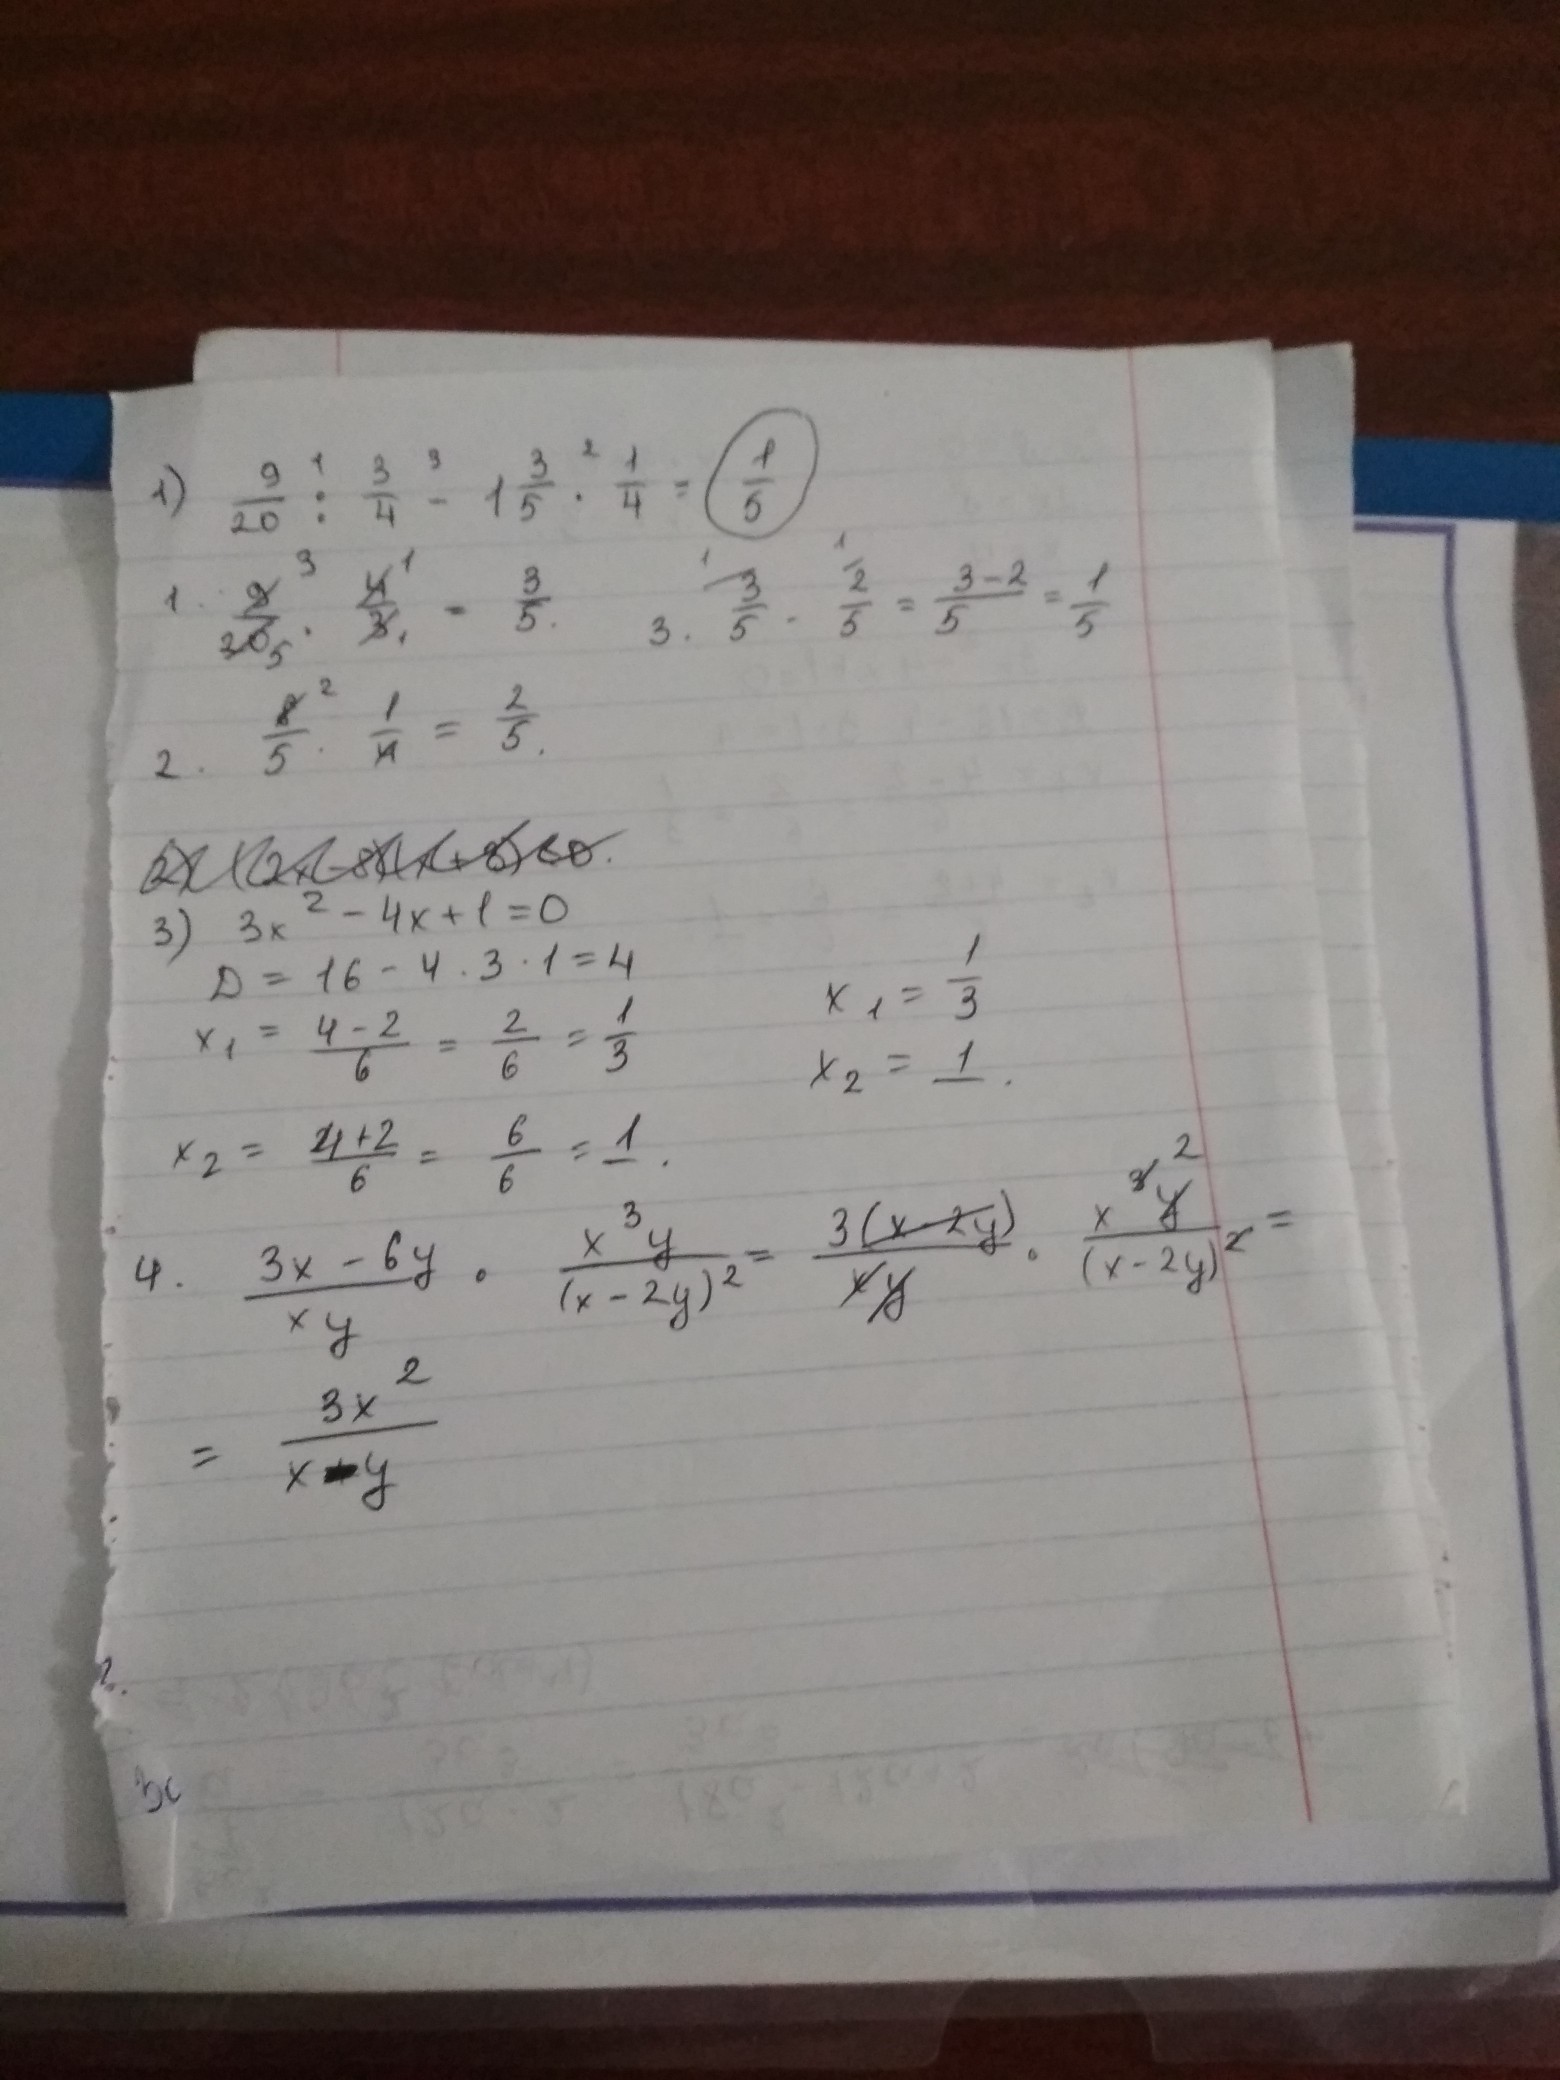 1) 9/20 : 3/4 - 1 3/5 · 1/4 = 1/5
1. 9/20 · 4/3 = 3/5. 3. 3/5 - 2/5 = 3-2/5 = 1/5
2. 8/5 · 1/4 = 2/5.
3) 3x² - 4x + 1 = 0
D = 16 - 4 · 3 · 1 = 4
x₁ = 4-2/6 = 2/6 = 1/3
x₁ = 1/3
x₂ = 1.
x₂ = 4+2/6 = 6/6 = 1.
4. 3x - 6y/xy · x³y/(x-2y)² = 3(x-2y)/xy · x³y/(x-2y)² =
= 3x²/x-y